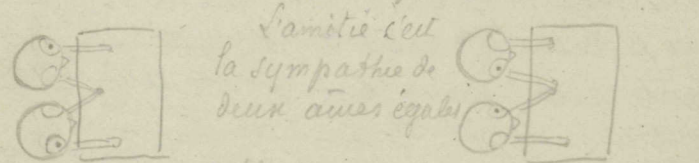 L'amitié c'est
la sympathie de
deux âmes égales